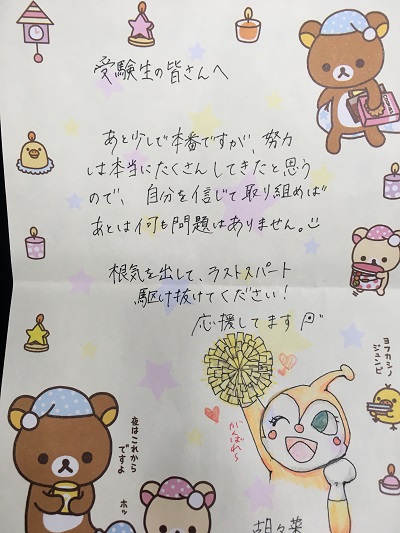 受験生の皆さんへ
あと少しで本番ですが、努力
は本当にたくさんしてきたと思う
ので、自分を信じて取り組めば
あとは何も問題はありません。
根気を出して、ラストスパート
駆け抜けてください！
応援してます
ヨフカシノ
ジュンビ
がんばれ〜
夜はこれから
ですよ
ホッ
胡々菜